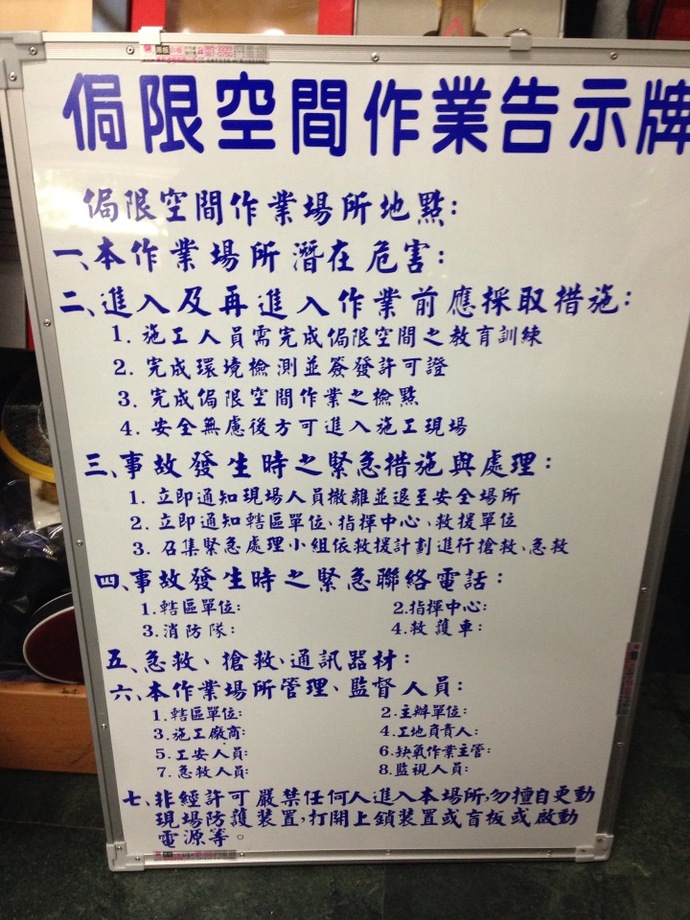 侷限空間作業告示牌
侷限空間作業場所地點:
一、本作業場所潛在危害:
二、進入及再進入作業前應採取措施:
1. 施工人員需完成侷限空間之教育訓練
2. 完成環境檢測並簽發許可證
3. 完成侷限空間作業之檢點
4. 安全無慮後方可進入施工現場
三、事故發生時之緊急措施與處理:
1. 立即通知現場人員撤離並退至安全場所
2. 立即通知轄區單位、指揮中心、救援單位
3. 召集緊急處理小組依救援計劃進行搶救、急救
四、事故發生時之緊急聯絡電話:
1.轄區單位: 2.指揮中心:
3.消防隊: 4.救護車:
五、急救、搶救、通訊器材:
六、本作業場所管理、監督人員:
1.轄區單位: 2.主辦單位:
3.施工廠商: 4.工地負責人:
5.工安人員: 6.缺氧作業主管:
7.急救人員: 8.監視人員:
七、非經許可嚴禁任何人進入本場所,勿擅自更動
現場防護裝置,打開上鎖裝置或盲板或啟動
電源等。